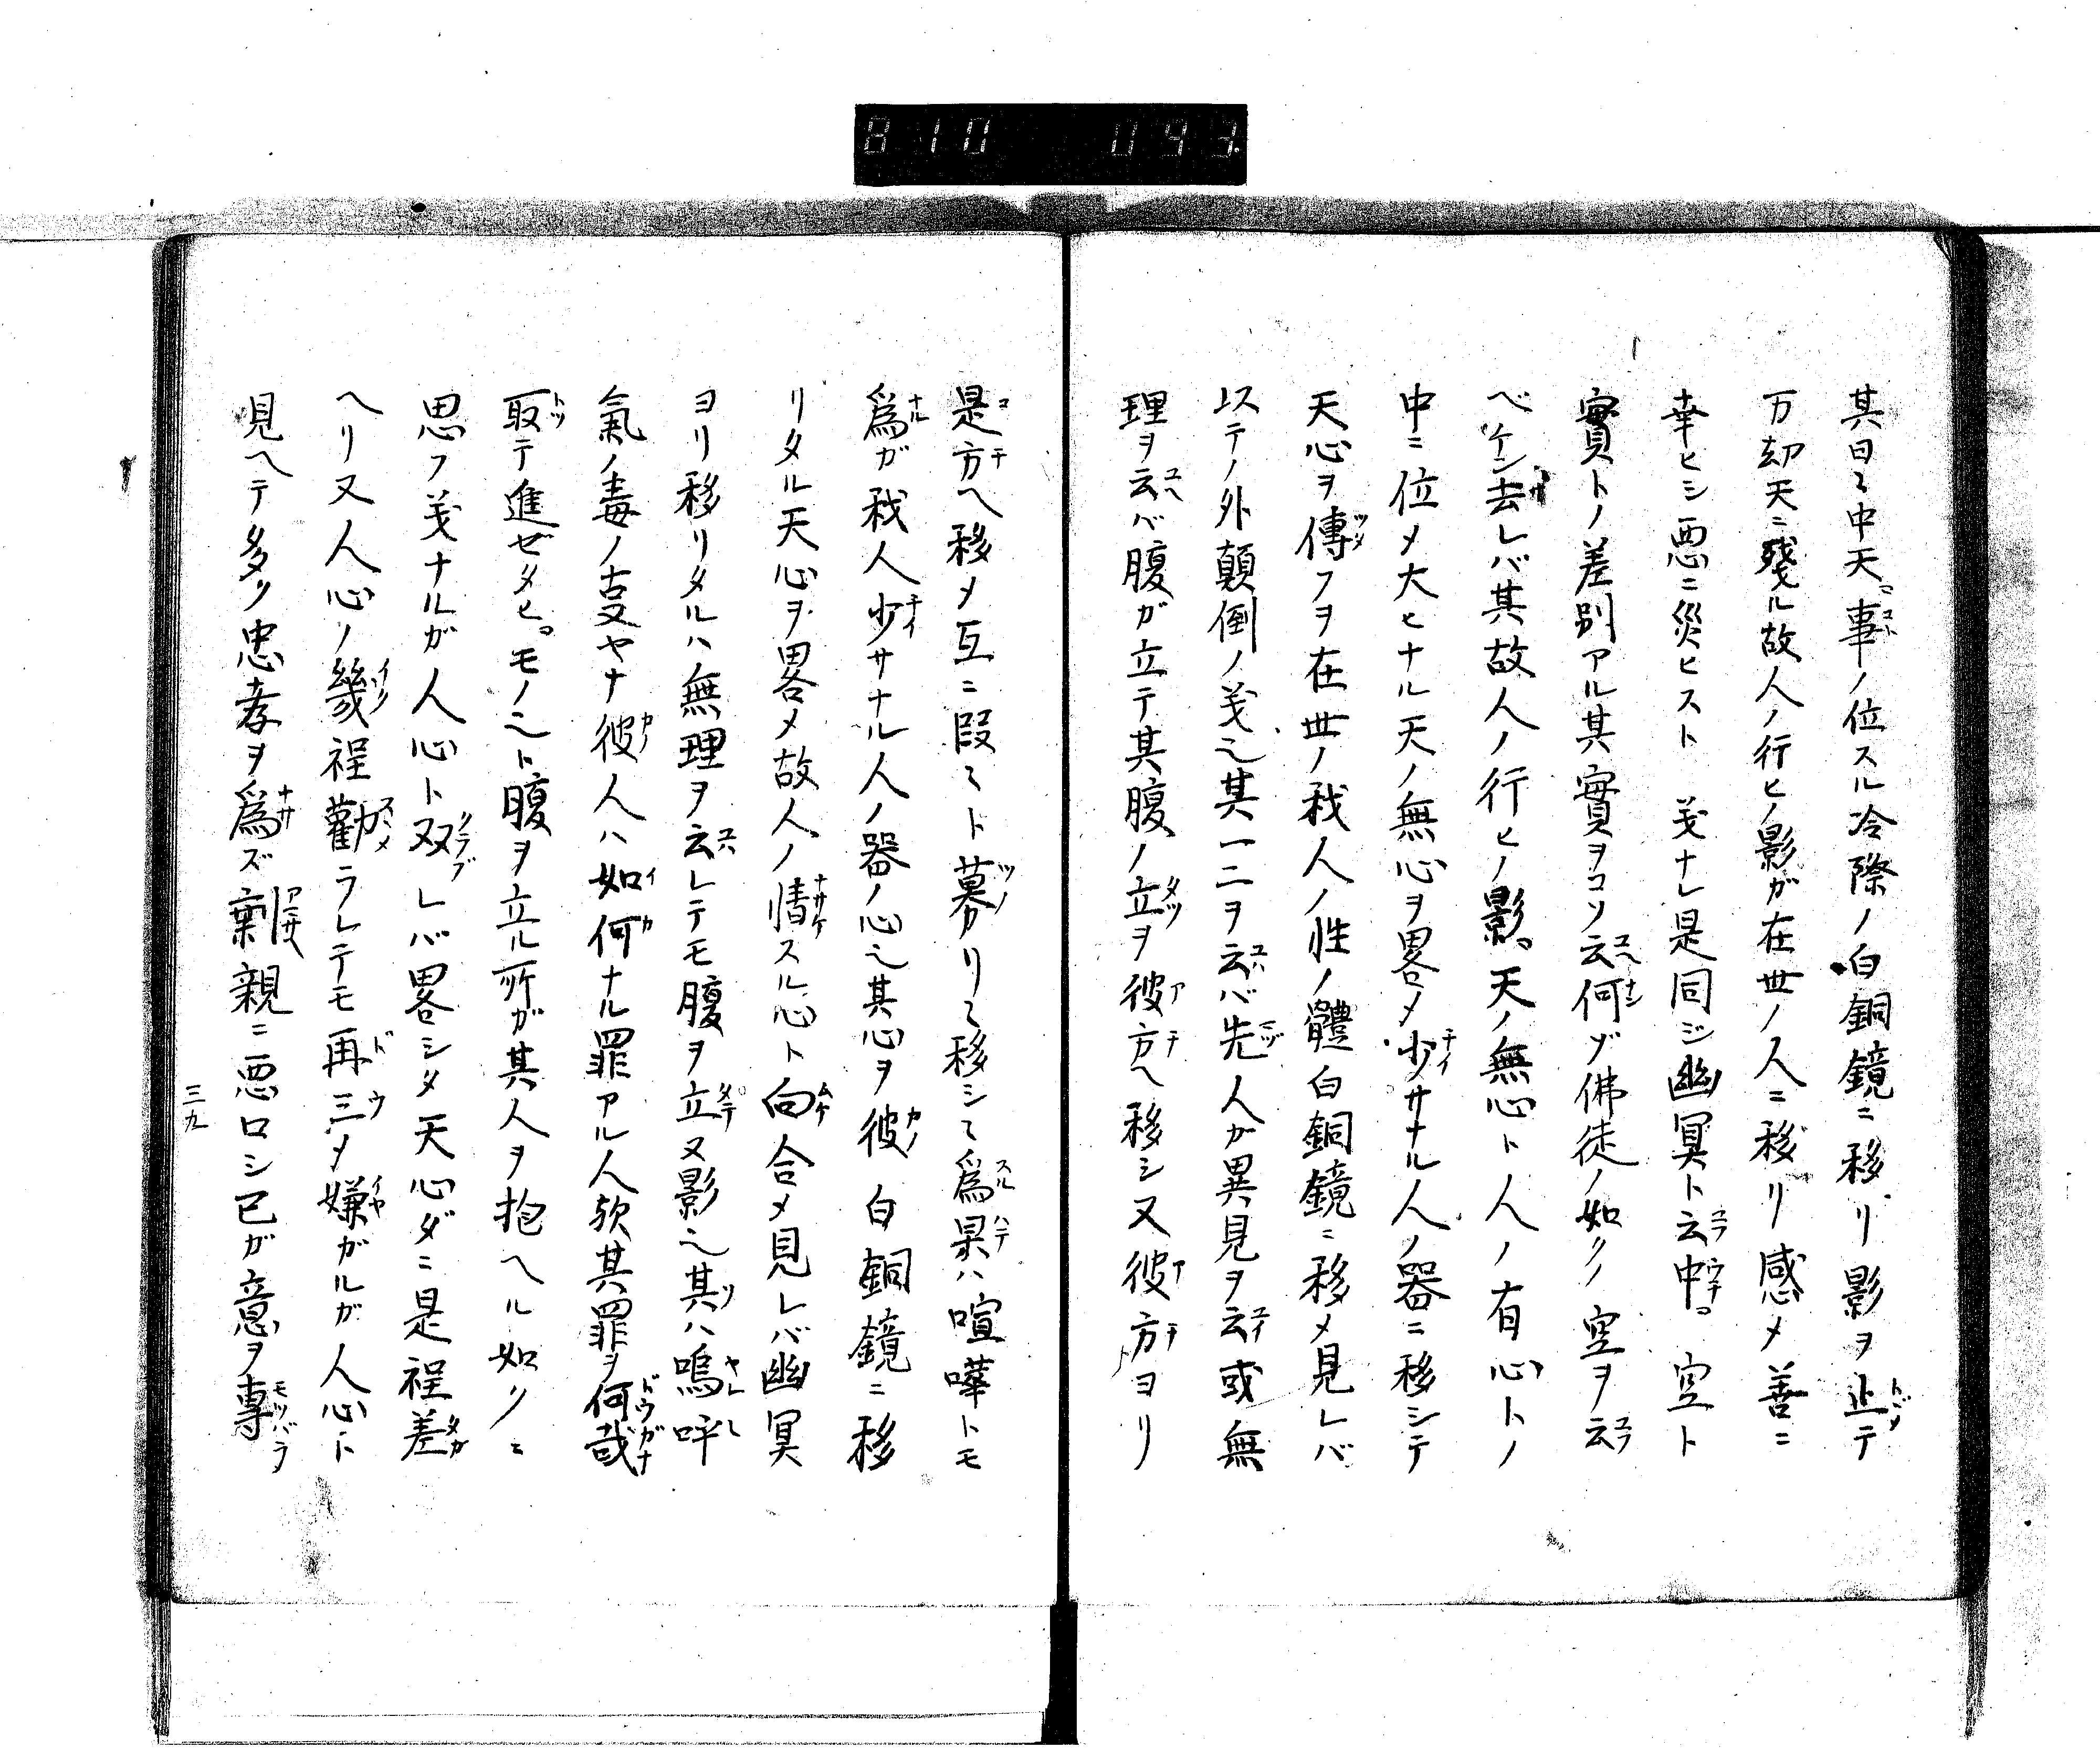 810 093
其日々中天事ノ位スル冷際ノ白銅鏡ニ移リ影ヲ止テ
万劫天ニ残ル故人ノ行ヒノ影ガ在世ノ人ニ移リ感メ善ニ
幸ヒシ悪ニ災ヒスト 義ナレ是同ジ幽冥ト云中 空ト
實トノ差別アル其實ヲコソ云何ゾ佛徒ノ如クノ空ヲ云
ベケン去レバ其故人ノ行ヒノ影 天ノ無心ト人ノ有心トノ
中ニ位メ大ヒナル天ノ無心ヲ畧メ少サナル人ノ器ニ移シテ
天心ヲ傳フヲ在世ノ我人ノ性ノ體白銅鏡ニ移メ見レバ
以テノ外顛倒ノ義也其一二ヲ云バ先人カ異見ヲ云或無
理ヲ云バ腹ガ立テ其腹ノ立ヲ彼方ヘ移シ又彼方ヨリ
是方ヘ移メ互ニ段々ト募リ々移シ々為果ハ喧嘩トモ
為ガ我人少サナル人ノ器ノ心也其心ヲ彼白銅鏡ニ移
リタル天心ヲ畧メ故人ノ情スル心ト向合メ見レバ幽冥
ヨリ移リタルハ無理ヲ云レテモ腹ヲ立又影也其ハ嗚呼
氣ノ毒ノ支ヤナ彼人ハ如何ナル罪アル人欤其罪ヲ何哉
取テ進ゼタヒモノ也ト腹ヲ立ル所ガ其人ヲ抱ヘル如クニ
思フ義ナルガ人心ト双レバ畧シタ天心ダニ是程差
ヘリ又人心ノ幾程勸ラレテモ再三メ嫌ガルガ人心ト
見ヘテ多ク忠孝ヲ為ズ剰親ニ悪ロシ己ガ意ヲ專
三九